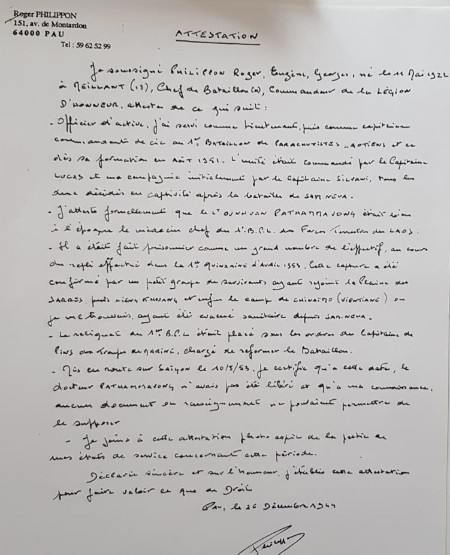 Roger PHILIPPON
151, av. de Montardon
64000 PAU
Tel : 59 62 52 99
ATTESTATION
Je soussigné PHILIPPON Roger, Eugène, Georges, né le 11 Mai 1922
à MEILLANT (18), Chef de Bataillon, Commandeur de la LÉGION
D'HONNEUR, atteste de ce qui suit :
- Officier d'active, j'ai servi comme lieutenant, puis comme capitaine
commandant de Cie au 1er BATAILLON de PARACHUTISTES LAOTIENS et ce
dès sa formation en Août 1951. L'unité était commandé par le Capitaine
LUCAS et ma compagnie initialement par le Capitaine, tous les
deux décédés en captivité après la bataille de SAM-NEUA.
- J'atteste formellement que le PATHAMMAVONG était bien
à l'époque le médecin chef du 1er B.P.L. des du LAOS.
- Il a était fait prisonnier comme un grand nombre de l'effectif, au cours
du repli effectué dans la 1ère Quinzaine d'Avril 1953. Cette capture a été
confirmée par un petit groupe de survivants ayant rejoint la Plaine des
JARRES, puis XIENG KHUANG et enfin le camp de CHINAIMO (VIENTIANE) où
je me trouvais, ayant été évacué sanitaire depuis SAM-NEUA.
- Le reliquat du 1er B.P.L. était placé sous les ordres du Capitaine de
PINS des Troupes de MARINE, chargé de reformer le Bataillon.
- Mis en route sur Saïgon le 10/5/53, je certifie qu'à cette date, le
docteur PATHAMMAVONG n'avais pas été libéré et qu'à ma connaissance,
aucun document ou renseignement ne pouvaient permettre de
le supposer
- Je joins à cette attestation photo copie de la partie de
mes états de service concernant cette période.
Déclarée sincère et sur l'honneur, j'établis cette attestation
pour faire valoir ce que de Droit
PAU, le 26 Décembre